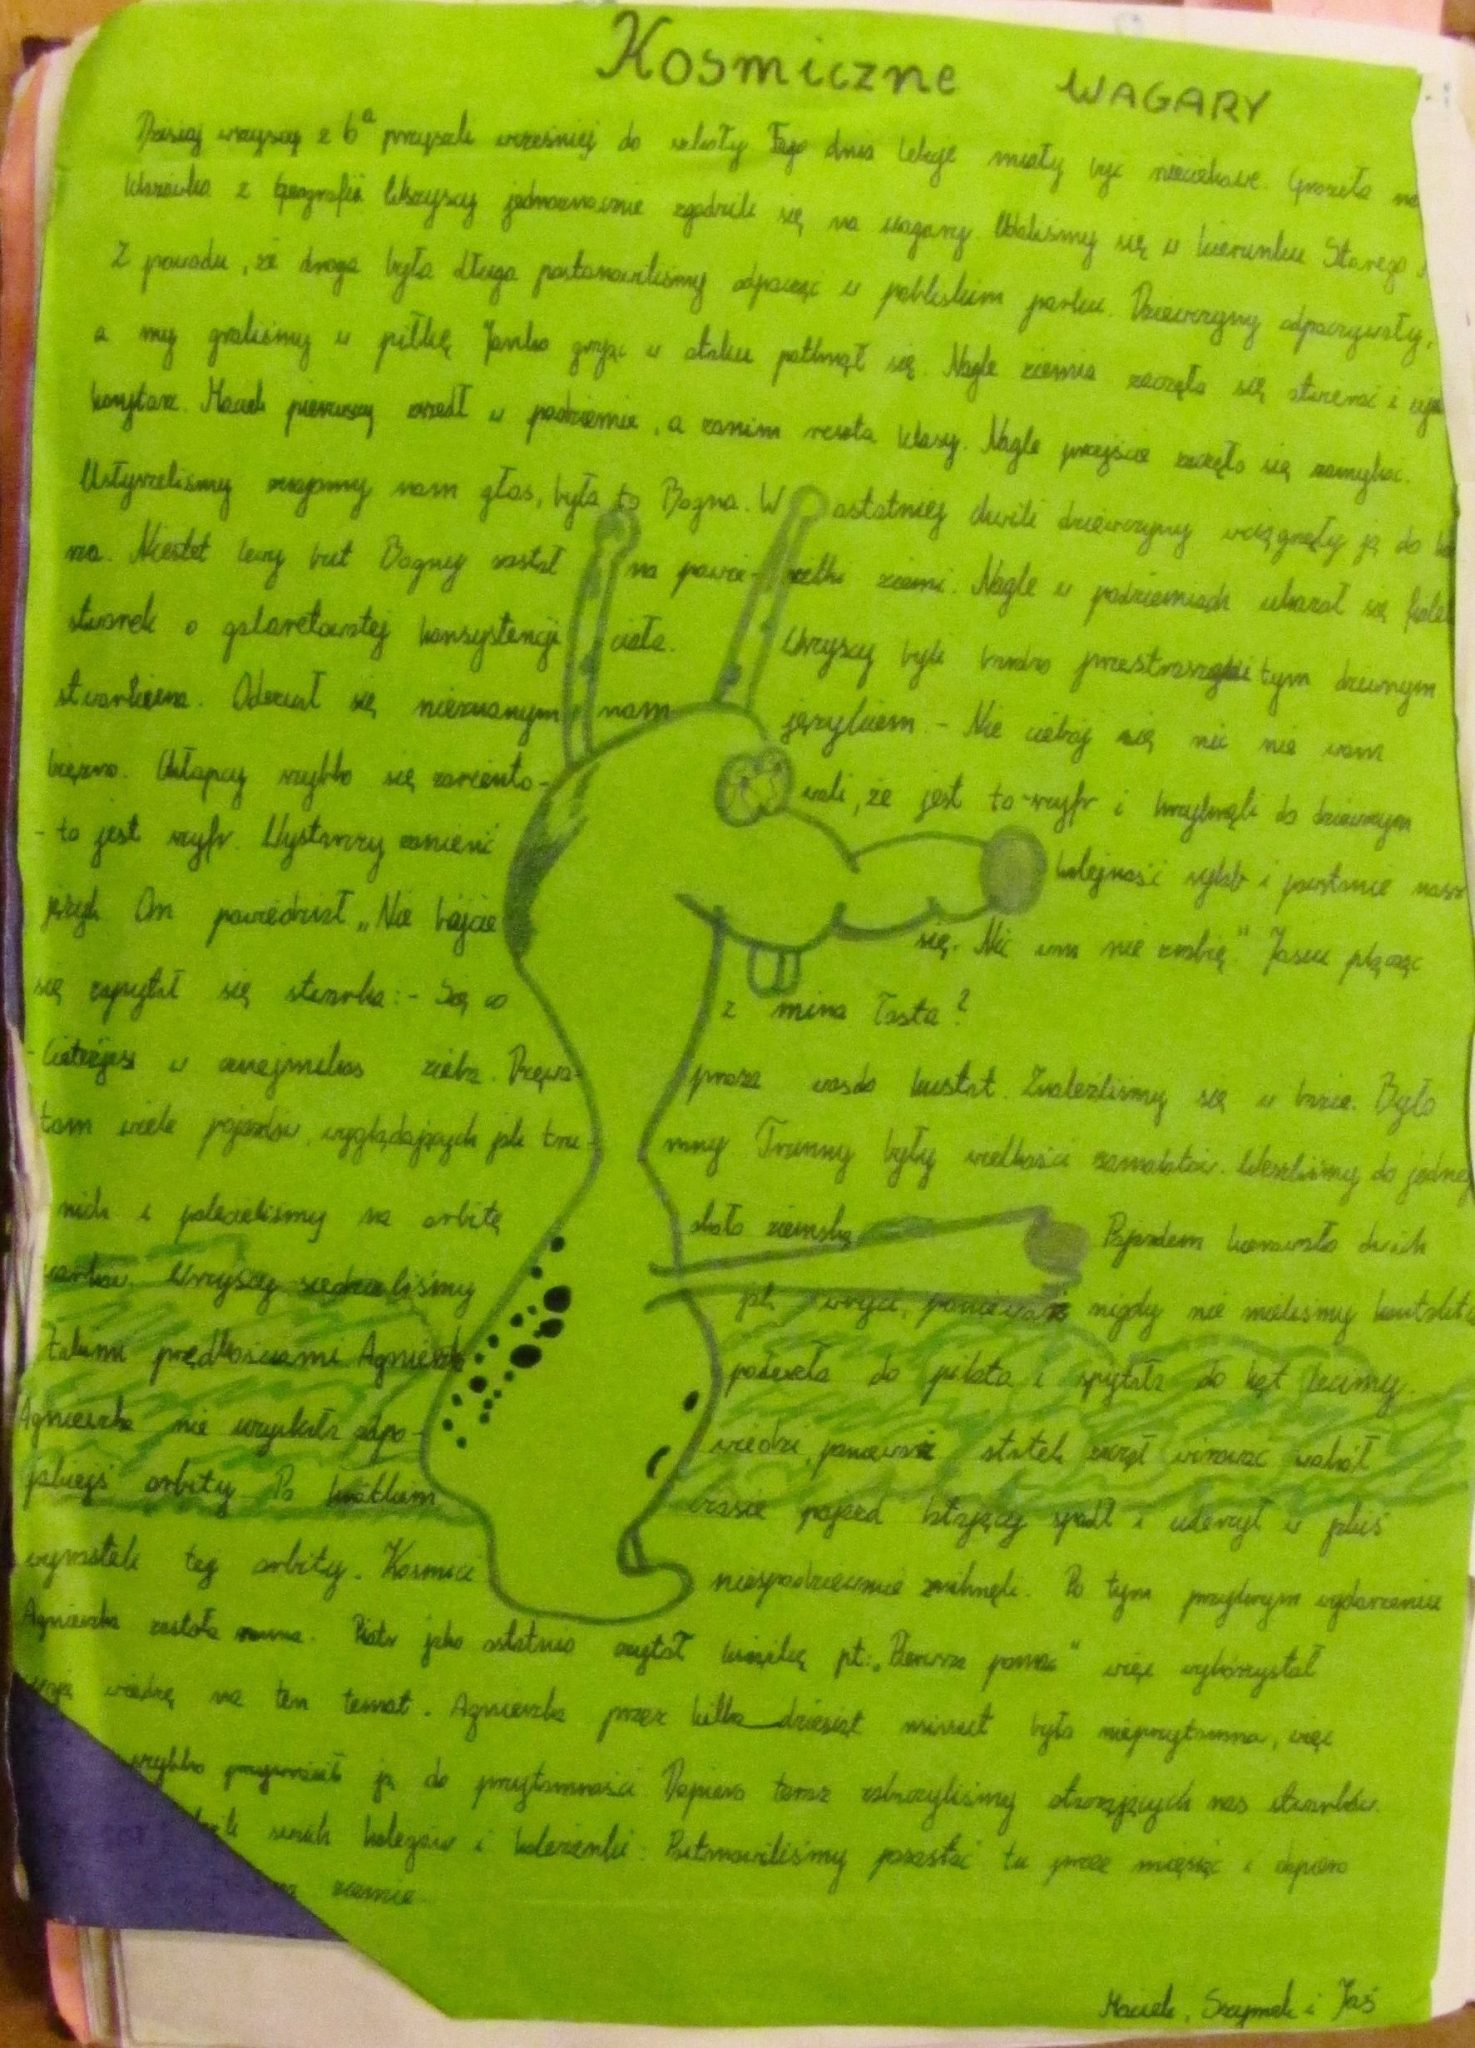 Kosmiczne WAGARY
Dzisiaj wszyscy z 6a przyszli wcześniej do szkoły. Tego dnia lekcje miały być nieciekawe. Groziła na
klasówka z geografii. Wszyscy jednoznacznie zgodzili się na wagary. Udaliśmy się w kierunku Starego
Z powodu, że droga była długa postanowiliśmy odpocząć w pobliskim parku. Dziewczyny odpoczywały,
a my graliśmy w piłkę. Janko grając w ataku potknął się. Nagle ziemia zaczęła się otwierać i
korytarz. Maciek pierwszy wszedł w podziemie, a zanim reszta klasy. Nagle przejście zaczęło się zamykać.
Usłyszeliśmy znajomy nam głos, była to Bogna. W ostatniej chwili dziewczyny wciągnęły ją do
na. Niestet lewy but Bogny został na powie- rzchni ziemi. Nagle w podziemiach ukazał się
stworek o galaretowatej konsystencji ciała. Wszyscy byli bardzo przestraszeni tym dziwnym
stworkiem. Odezwał się nieznanym nam językiem. - Nie ciebój się nic nie wam
bięzro. Chłopcy szybko się zoriento- wali, że jest to szyfr i krzyknęli do dziewczyn
- to jest szyfr. Wystarczy zamienić kolejność sylab i powstanie nasz
język. On powiedział „Nie bójcie się. Nic wam nie zrobię." Jasiu plącząc
się zapytał się stworka: - Są co z mina łosta?
w ziebz. prasz wasdo kustat. Znaleźliśmy się w bazie. Było
tam wiele pojazdów, wyglądających jak tru- mny. Trumny były wielkości samolotów. Weszliśmy do jednej
nich i polecieliśmy na orbitę około ziemską. Pojazdem kierowało dwóch
Wszyscy siedzieliśmy jak wryci, ponieważ nigdy nie mieliśmy kontaktu
z takimi prędkościami. Agnieszka podeszła do pilota i spytała do kąt lecimy.
Agnieszka nie uzyskała odpo- wiedzi, ponieważ statek zaczął wirować wokół
jakiejś orbity. Po krótkim czasie pojazd latający spadł i uderzył w jakiś
wyrostek tej orbity. Kosmici niespodziewanie zniknęli. Po tym przykrym wydarzeniu
Agnieszka została ranna. Piotr jako ostatnio czytał książkę pt: „Pierwsza pomoc" więc wykorzystał
swoją wiedzę na ten temat. Agnieszka przez kilka dziesiąt minut była nieprzytomna, więc
szybko przywrócił ją do przytomności. Dopiero teraz zobaczyliśmy otaczających nas stworków.
swoich kolegów i koleżanki. Postanowiliśmy pozostać tu przez miesiąc i dopiero
na ziemię.
Maciek, Szymek i Jaś